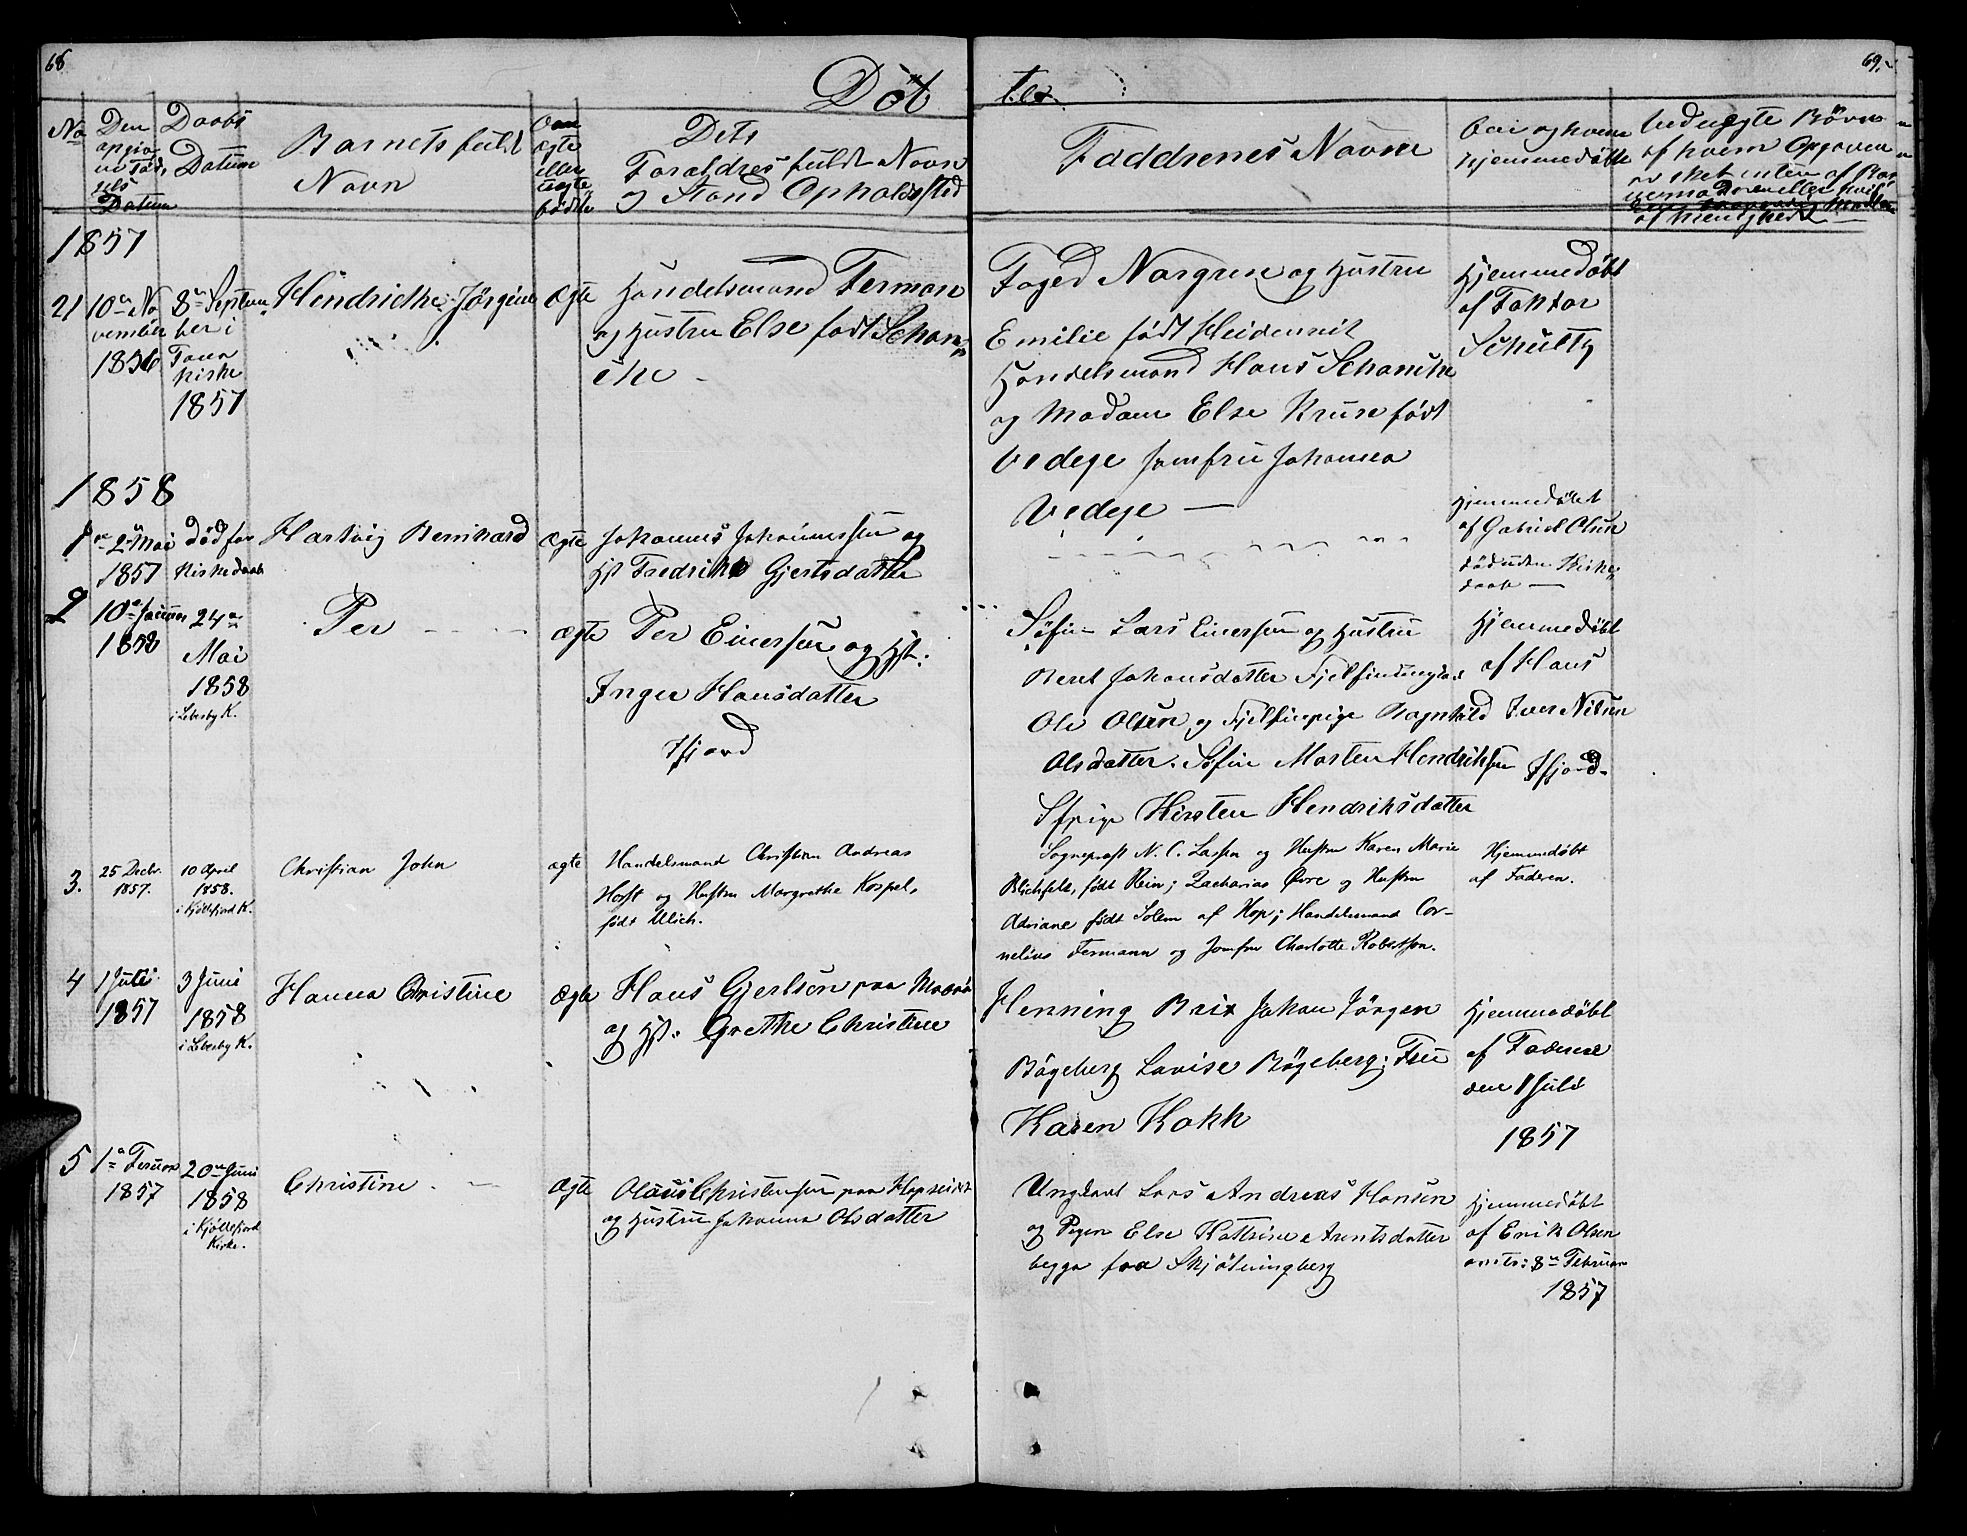 68
69.
Døb
te
No
Den
opgiv
ne Fød,
sels
Datum
Daabs
Datum
Barnets fulde
Navn
Om
ægte
eller
uægte
fødte
Dets
Forældres fulde Navn
og Stand Opholdssted
Faddrenes Navne
hjemmedøbte
Uduegte Børn
af hvem Opgaven
er sket
af Menighed
1857
21
10de No
vember
1856
8de Septem
ber i
Tana
Kirke
1857
Hendrikke Jørgine
Ægte
Handelsmand Ferman
og Hustru Else født Schan,
che
Foged Norgren og Hustru
Emilie født Heidenreit
Handelsmand Hans Schanche
og Madam Else Kruse født
Vedege Jomfru Johanna
Vedege
Hjemmedøbt
af Faktor
Schultz
1858
1
2 Mai
1857
død før
Kirkedaab
Hartvig Bernhard
Ægte
Johannes Johannessen og
Hst Fredrikke Gjertsdatter
Hjemmedøbt
af Gabriel Olsen
død uden Kirke,
daab
2
10de Januar
1858
24de
Mai
1858
i Lebesby K.
Per
Ægte
Per Einersen og Hst:
Inger Hansdatter
Ifjord
Søfin Lars Einersen og Hustru
Beret Johansdatter
Ole Olsen og Fjelfinpige Ragnhild
Olsdatter. Søfin Morten Hendriksen
Sfpige Kirsten Hendriksdatter
Hjemmedøbt
af Hans
Iver Nilsen
Ifjord
3.
25 Decbr.
1857.
10 April
1858.
i Kjøllefjord K.
Christian John
ægte
Handelsmand Christian Andreas
Hoft og Hustru Margrethe Kospel,
født Ulich.
Sognepræst N. C. Lassen og Hustru Karen Marie
Blichfeldt, født Rein; Zacharias Øvre og Hustru
Adriane født Solem af Hop; Handelsmand Cor-
nelius Fermann og Jomfru Charlotte Robertson.
Hjemmedøbt
af Faderen.
4
1 Juli
1857
3 Juni
1858
i Lebesby K.
Hanna Christine
Ægte
Hans Gjertsen paa
og Hst. Grethe Christine
Henning Brix Johan Jörgen
Bögeberg Lovise Bögeberg; Fru
Karen Kokk
Hjemmedøbt
af Faderen
den 1 Juli
1857
5
1de
1857
20de Juni
1858
i Kjøllefjord
Kirke.
Christine
Ægte
Olaus Christensen paa Hopseidet
og Hustru Johanna Olsdatter
Ungkarl Lars Andreas Hansen
og Pigen Else Kattrine Arentsdatter
begge fra Skjötningberg
Hjemmedøbt
af Erik Olsen
8de Februar
1857